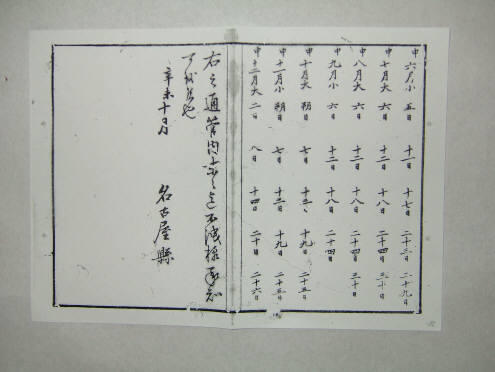 申六月小 五日 十一日 十七日 二十三日 二十九日
申七月大 六日 十二日 十八日 二十四日 三十日
申八月大 六日 十二日 十八日 二十四日 三十日
申九月小 六日 十二日 十八日 二十四日
申十月大 朔 七日 十三、 十九日 二十五日
申十一月小 朔 七日 十三日 十九日 二十五日
申十二月大 二日 八日 十四日 二十日 二十六日
右之通管内 不洩様承知
辛未十月
名古屋縣